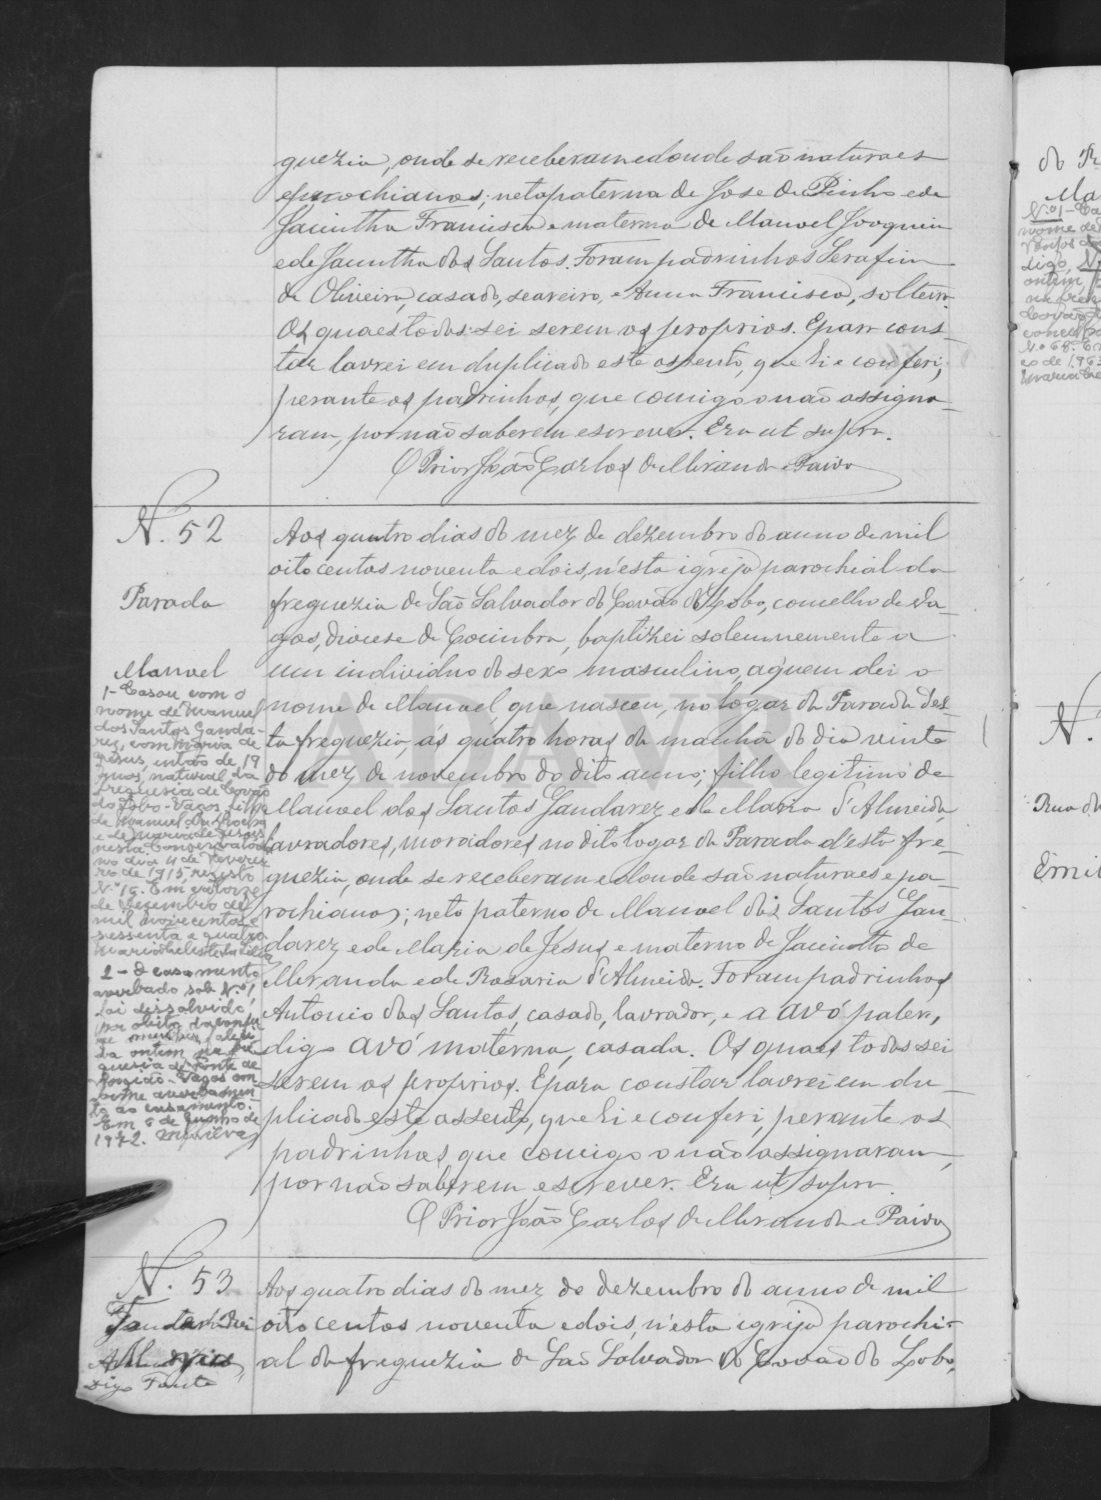 guezia, onde se receberam e d'onde são naturaes
e parochianos; neta paterna de José de Pinho e de
Jacintha Francisca e materna de Manoel Joaquim
e de Jacintha dos Santos. Foram padrinhos Serafim
de Oliveira, casado, seareiro, e Anna Francisca, solteira.
Os quaes todos sei serem os proprios. E para cons-
tar lavrei em duplicado este assento, que li e conferi,
perante os padrinhos, que comigo o não assigna-
ram, por não saberem escrever. Era ut supra.
O Prior João Carlos de Miranda e Paiva
N. 52
Parada
Manoel
1- Casou com o
nome de Manuel
dos Santos Ganda-
rez, com Maria de
Jesus, então de 19
anos, natural da
freguesia de Covão
do Lobo - Vagos, filha
de Manuel da Rocha
e de Maria de Jesus
nesta Conservatória
no dia 4 de Feverei-
ro de 1915, registo
N.º 15. Em catorze
de Dezembro de
mil novecentos e
sessenta e quatro
2 - O casamento
averbado sob N.º 1
foi dissolvido
por obito da conju-
ge mulher, faleci-
da ontem na fre-
guesia de Fonte de
Angião - Vagos con-
forme averbamen-
to ao casamento.
Em 6 de Junho de
1972.
Aos quatro dias do mez de dezembro do anno de mil
oito centos noventa e dois, n'esta igreja parochial da
freguezia de São Salvador do Covão do Lobo, concelho de Va-
gos, diocese de Coimbra, baptizei solemnemente a
um individuo do sexo masculino, a quem dei o
nome de Manoel, que nasceu, no logar da Parada des-
ta freguezia, ás quatro horas da manhã do dia vinte
do mez de novembro do dito anno; filho legitimo de
Manoel dos Santos Gandarez e de Maria d'Almeida,
lavradores, moradores no dito logar da Parada d'esta fre-
guezia, onde se receberam e d'onde são naturaes e pa-
rochianos; neto paterno de Manoel dos Santos Gan-
darez e de Maria de Jesus e materno de Jacintho de
Miranda e de Rosaria d'Almeida. Foram padrinhos
Antonio dos Santos, casado, lavrador, e a avó pater,
digo avó materna, casada. Os quaes todos sei
serem os proprios. E para constar lavrei em du-
plicado este assento, que li e conferi, perante os
padrinhos, que comigo o não assignaram,
por não saberem escrever. Era ut supra.
O Prior João Carlos de Miranda e Paiva
N. 53
Digo Fonte
Aos quatro dias do mez de dezembro do anno de mil
oito centos noventa e dois, n'esta igreja parochi-
al da freguezia de São Salvador do Covão do Lobo,
ADAVR
N.
Rua da